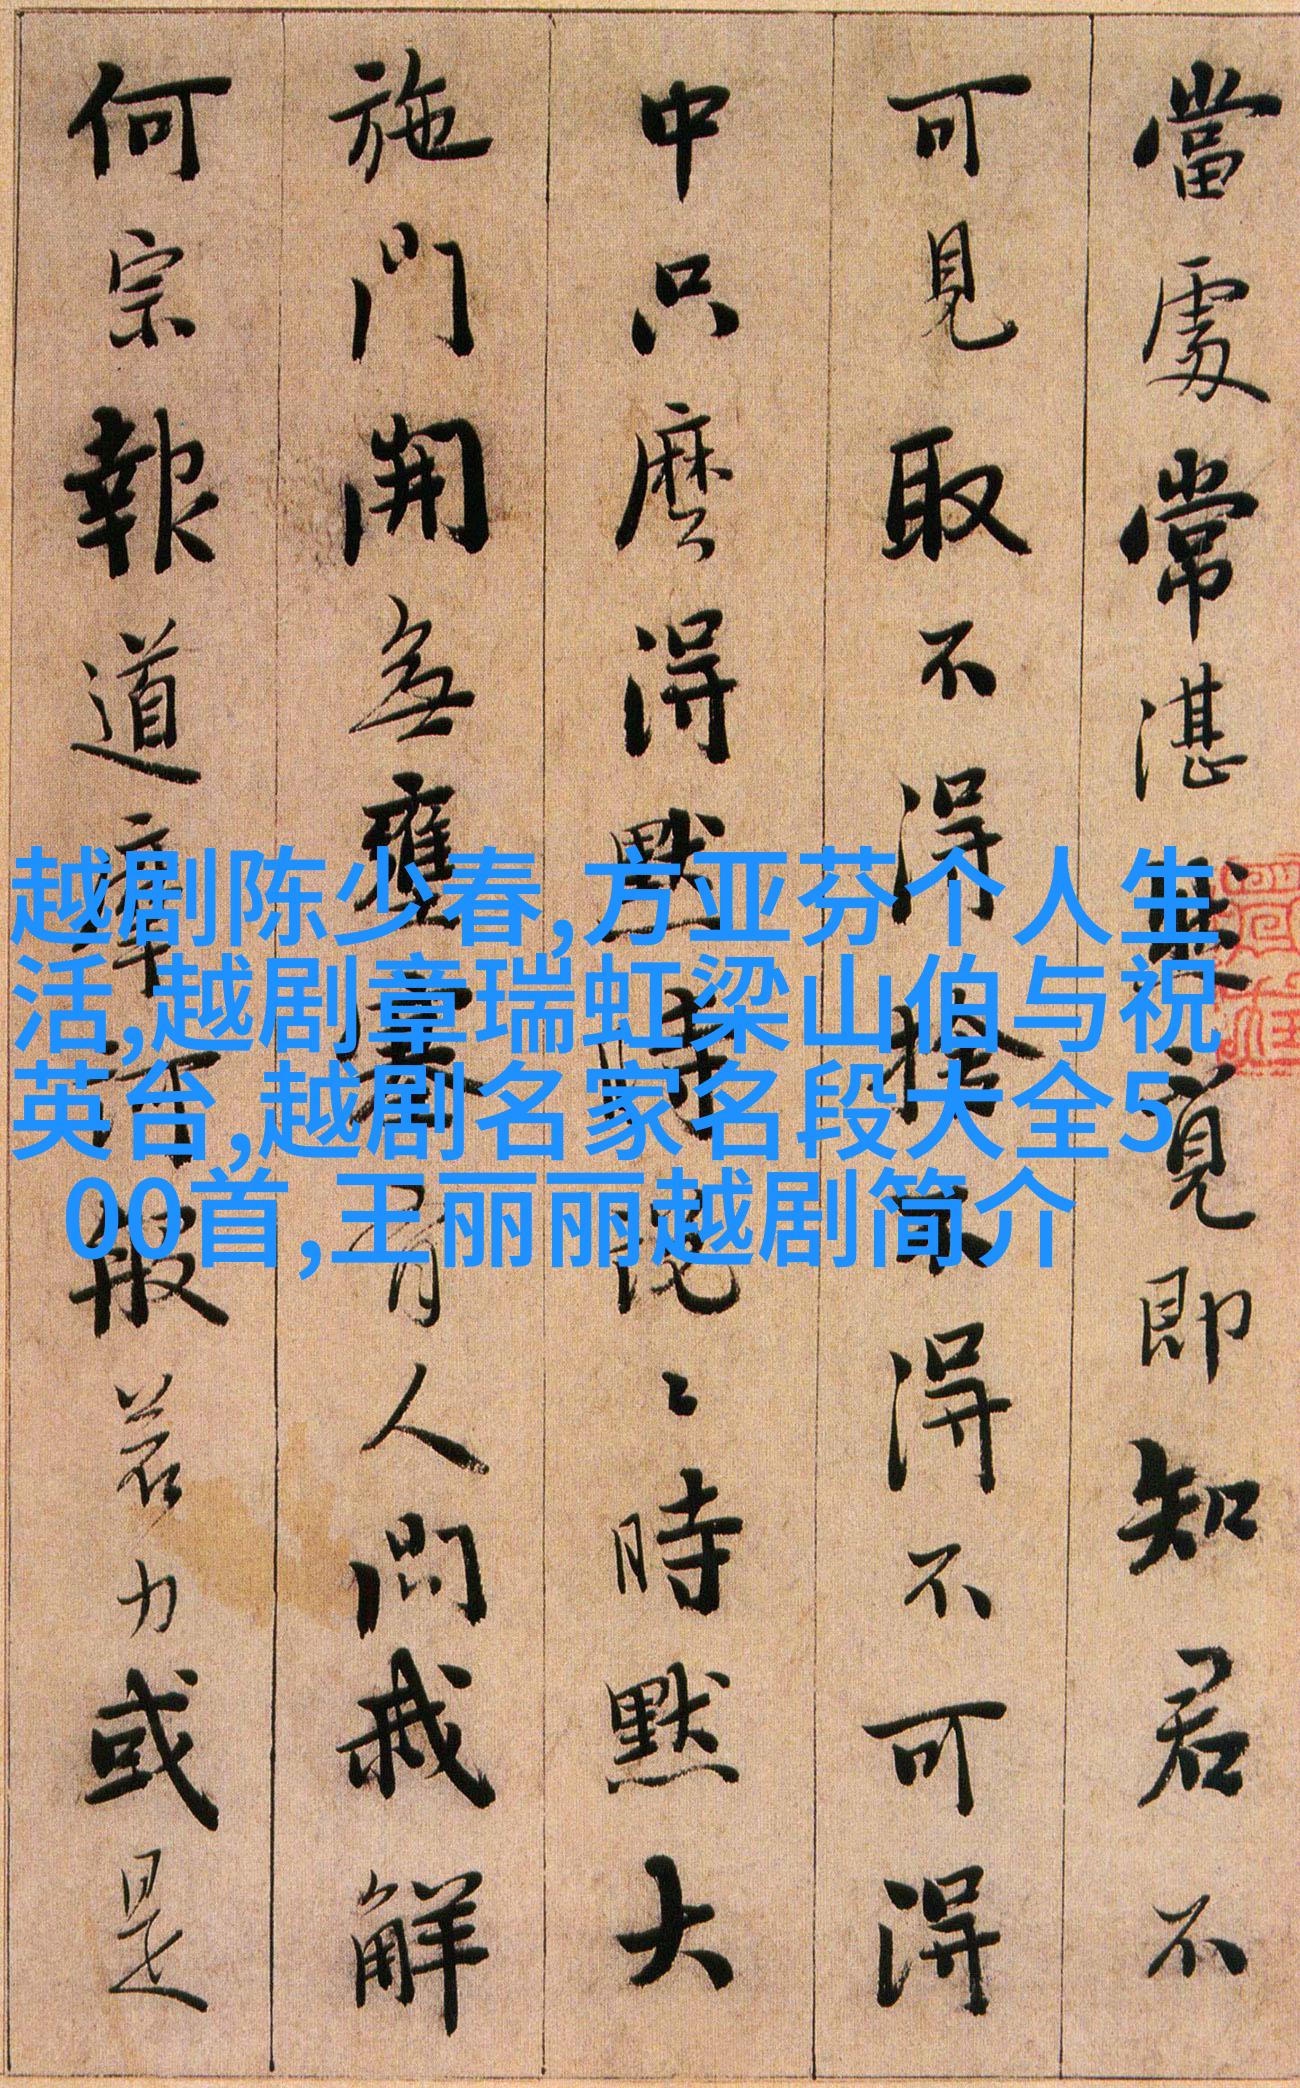 當處常湛然覓即知君不
可見取不得捨不得不可得
中只麼得默時說〻時默大
施門開無壅塞有人問我解
何宗報道摩訶般若力或是
越剧陈少春,方亚芬个人生
活,越剧章瑞虹梁山伯与祝
英台,越剧名家名段大全5
00首,王丽丽越剧简介